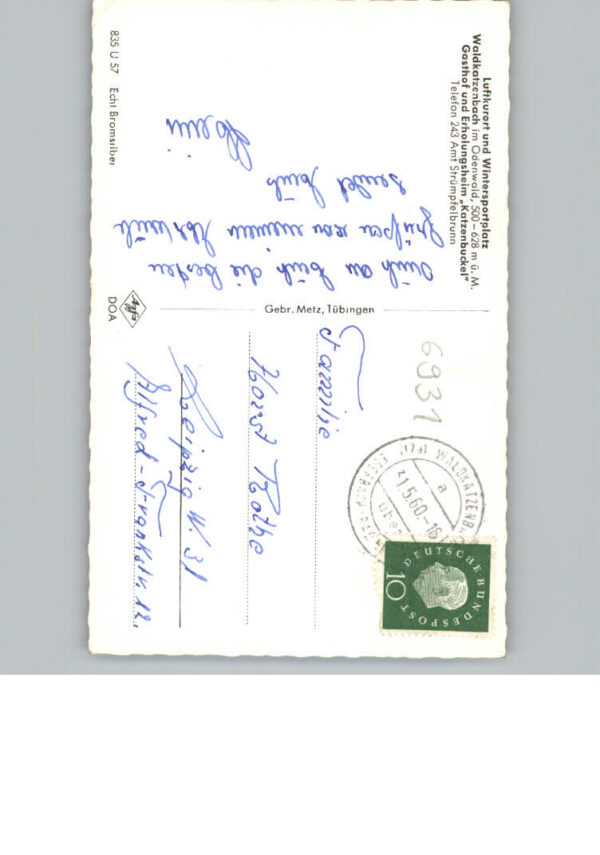 Luftkurort und Wintersportplatz
Waldkatzenbach im Odenwald, 500–628 m ü. M.
Gasthof und Erholungsheim „Katzenbuckel"
Telefon 243 Amt Strümpfelbrunn
Auch an Euch die besten
Grüße von meinem
sendet Euch
835 U 57 Echt Bromsilber
Gebr. Metz, Tübingen
Agfa
DOA
6931
(17a) WALDKATZENB
a
1.5.60.-16
über
EBERBACH
DEUTSCHE BUNDESPOST
10
Familie
Horst Rothe
Leipzig W. 31
Alfred-Frankstr. 12.